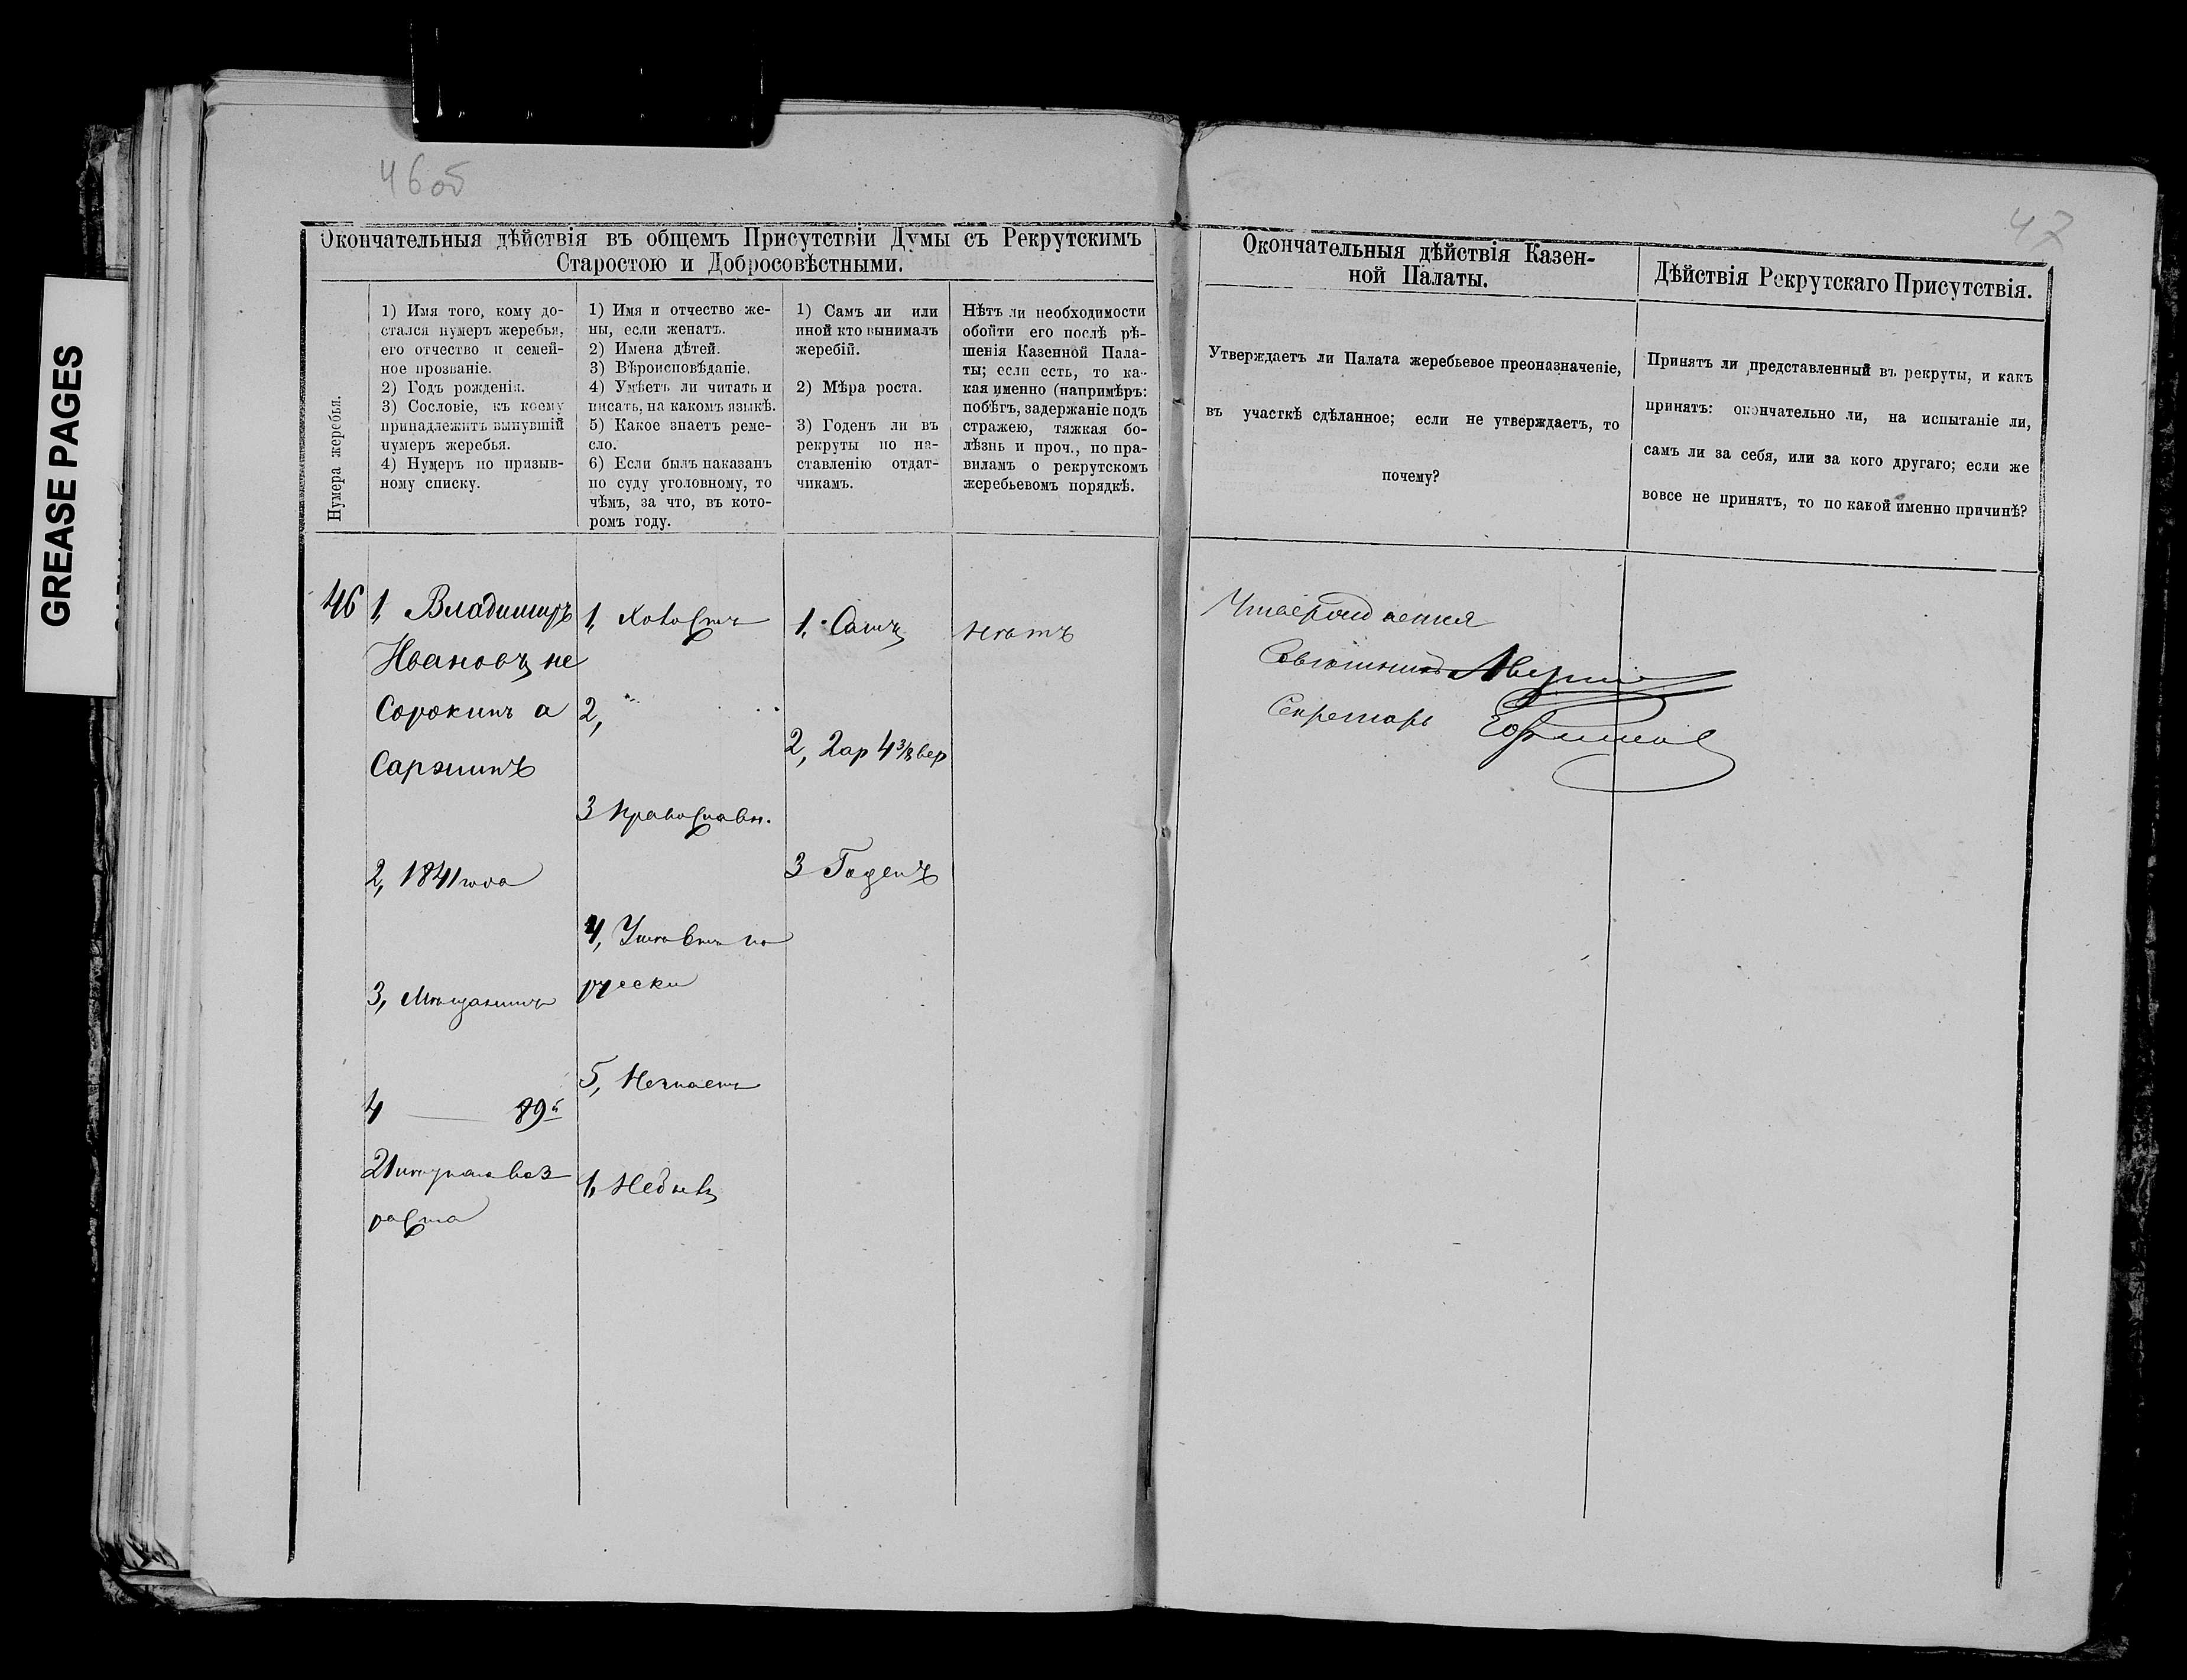 GREASE PAGES
46об
47
Окончательныя дѣйствія въ общемъ Присутствіи Думы съ Рекрутскимъ
Старостою и Добросовѣстными.
Нумера жеребья.
1) Имя того, кому до-
стался нумеръ жеребья,
его отчество и семей-
ное прозваніе.
2) Годъ рожденія.
3) Сословіе, къ коему
принадлежитъ вынувшій
нумеръ жеребья.
4) Нумеръ по призыв-
ному списку.
1) Имя и отчество же-
ны, если женатъ.
2) Имена дѣтей.
3) Вѣроисповѣданіе.
4) Умѣетъ ли читать и
писать, на какомъ языкѣ.
5) Какое знаетъ реме-
сло.
6) Если былъ наказанъ
по суду уголовному, то
чѣмъ, за что, въ кото-
ромъ году.
1) Самъ ли или
иной кто вынималъ
жеребій.
2) Мѣра роста.
3) Годенъ ли въ
рекруты по на-
ставленію отдат-
чикамъ.
Нѣтъ ли необходимости
обойти его послѣ рѣ-
шенія Казенной Пала-
ты; если есть, то ка-
кая именно (напримѣръ:
побѣгъ, задержаніе подъ
стражею, тяжкая бо-
лѣзнь и проч., по пра-
виламъ о рекрутскомъ
жеребьевомъ порядкѣ.
46
1, Владимиръ
Ивановъ не
Сорокинъ а
Саркинъ
2, 1841 года
3, Мѣщанинъ
4 — 89й
21
раста
1, Холостъ
2, "
3 Православн.
4, по
русски
5, Незнаетъ
Небылъ
1, Самъ
2, 2 ар 4 3/8 вер
3 Годенъ
Нѣтъ
Окончательныя дѣйствія Казен-
ной Палаты.
Утверждаетъ ли Палата жеребьевое преоназначеніе,
въ участкѣ сдѣланное; если не утверждаетъ, то
почему?
Утверждается
Совѣтникъ
Секретарь
Дѣйствія Рекрутскаго Присутствія.
Принятъ ли представленный въ рекруты, и какъ
принятъ: окончательно ли, на испытаніе ли,
самъ ли за себя, или за кого другаго; если же
вовсе не принятъ, то по какой именно причинѣ?